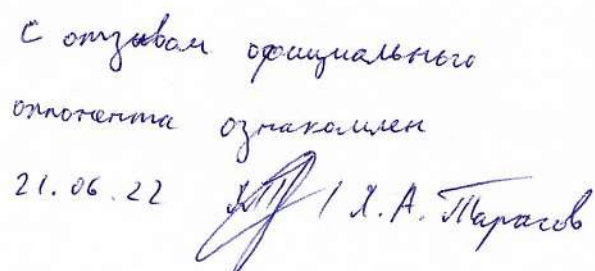 С отзывом официального
оппонента ознакомлен
21.06.22 / Х.А. Тарасов